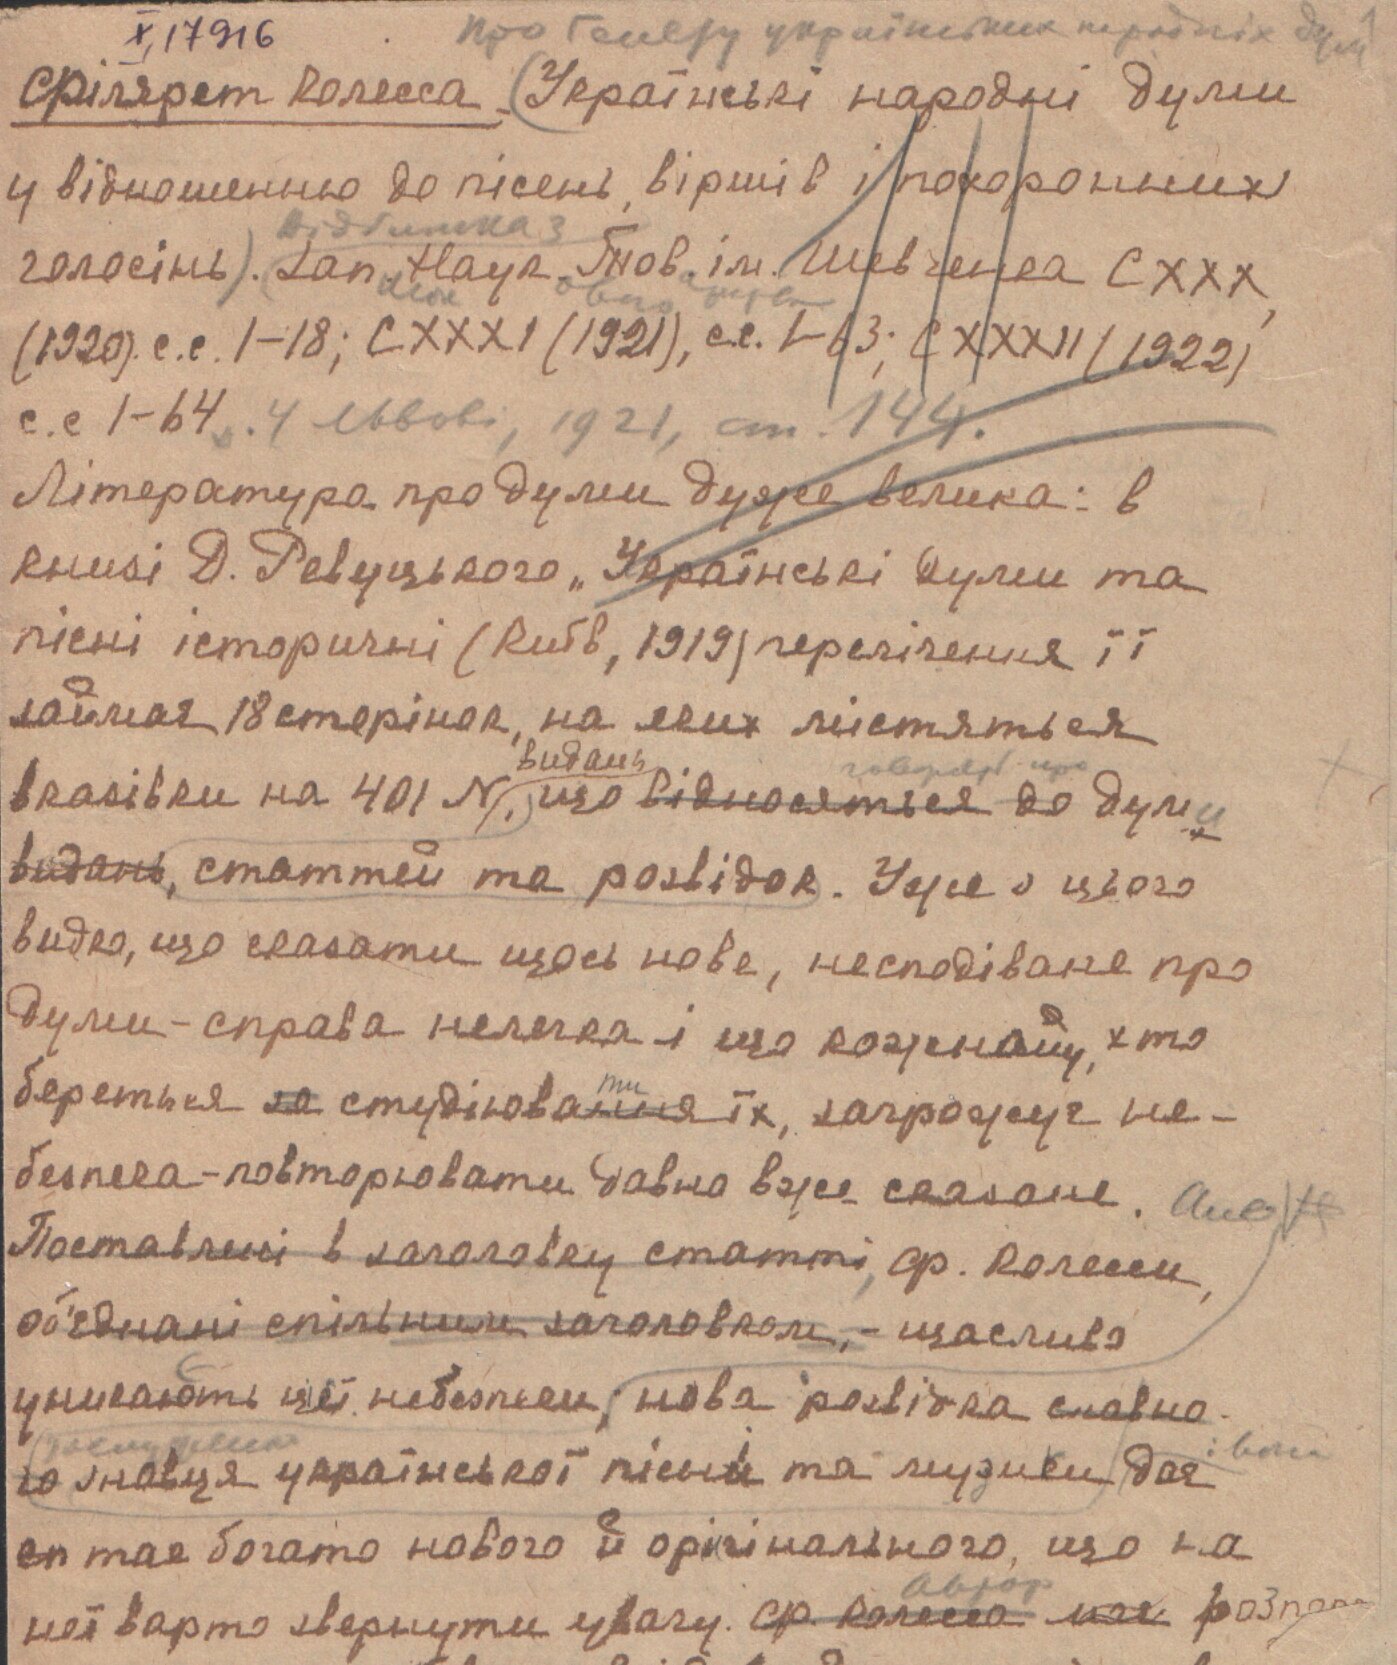 X,17916
Про ґенезу українських народніх дум
Філярет Колесса (Українські народні думи
у відношенню до пісень, віршів і похоронних
голосінь). Відбитка з
Зап. Наук. Тов. ім. Шевченка CXXX,
(1920). с.с. 1–18; CXXXI (1921), с.с. 1–63; CXXXII (1922)
с.с 1–64. У Львові, 1921, ст. 144.
Література про думи дуже велика: в
книзі Д. Ревуцького „Українські думи та
пісні історичні (Київ, 1919) перелічення її
займає 18 сторінок, на яких містяться
видань говорят про
вказівки на 401 №, що відносяться до думи
видань, статтей та розвідок. Уже з цього
видко, що сказати щось нове, несподіване про
думи – справа нелегка і що кожному, хто
ти
береться за студіювання їх, загрожує не-
безпека – повторювати давно вже сказане. Але
Поставлені в заголовку статті, Ф. Колесси,
об'єднані спільним заголовком, – щасливо
уникають цеї небезпеки; нова розвідка славно-
го знавця української пісні та музики дає
стає богато нового й оріґінального, що на
неї варто звернути увагу. Ф. Колесса має
автор